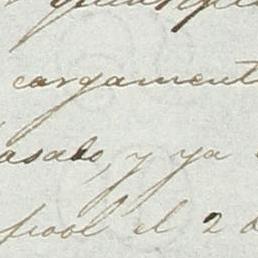 cargament
asado, y ya
pool el 2 d